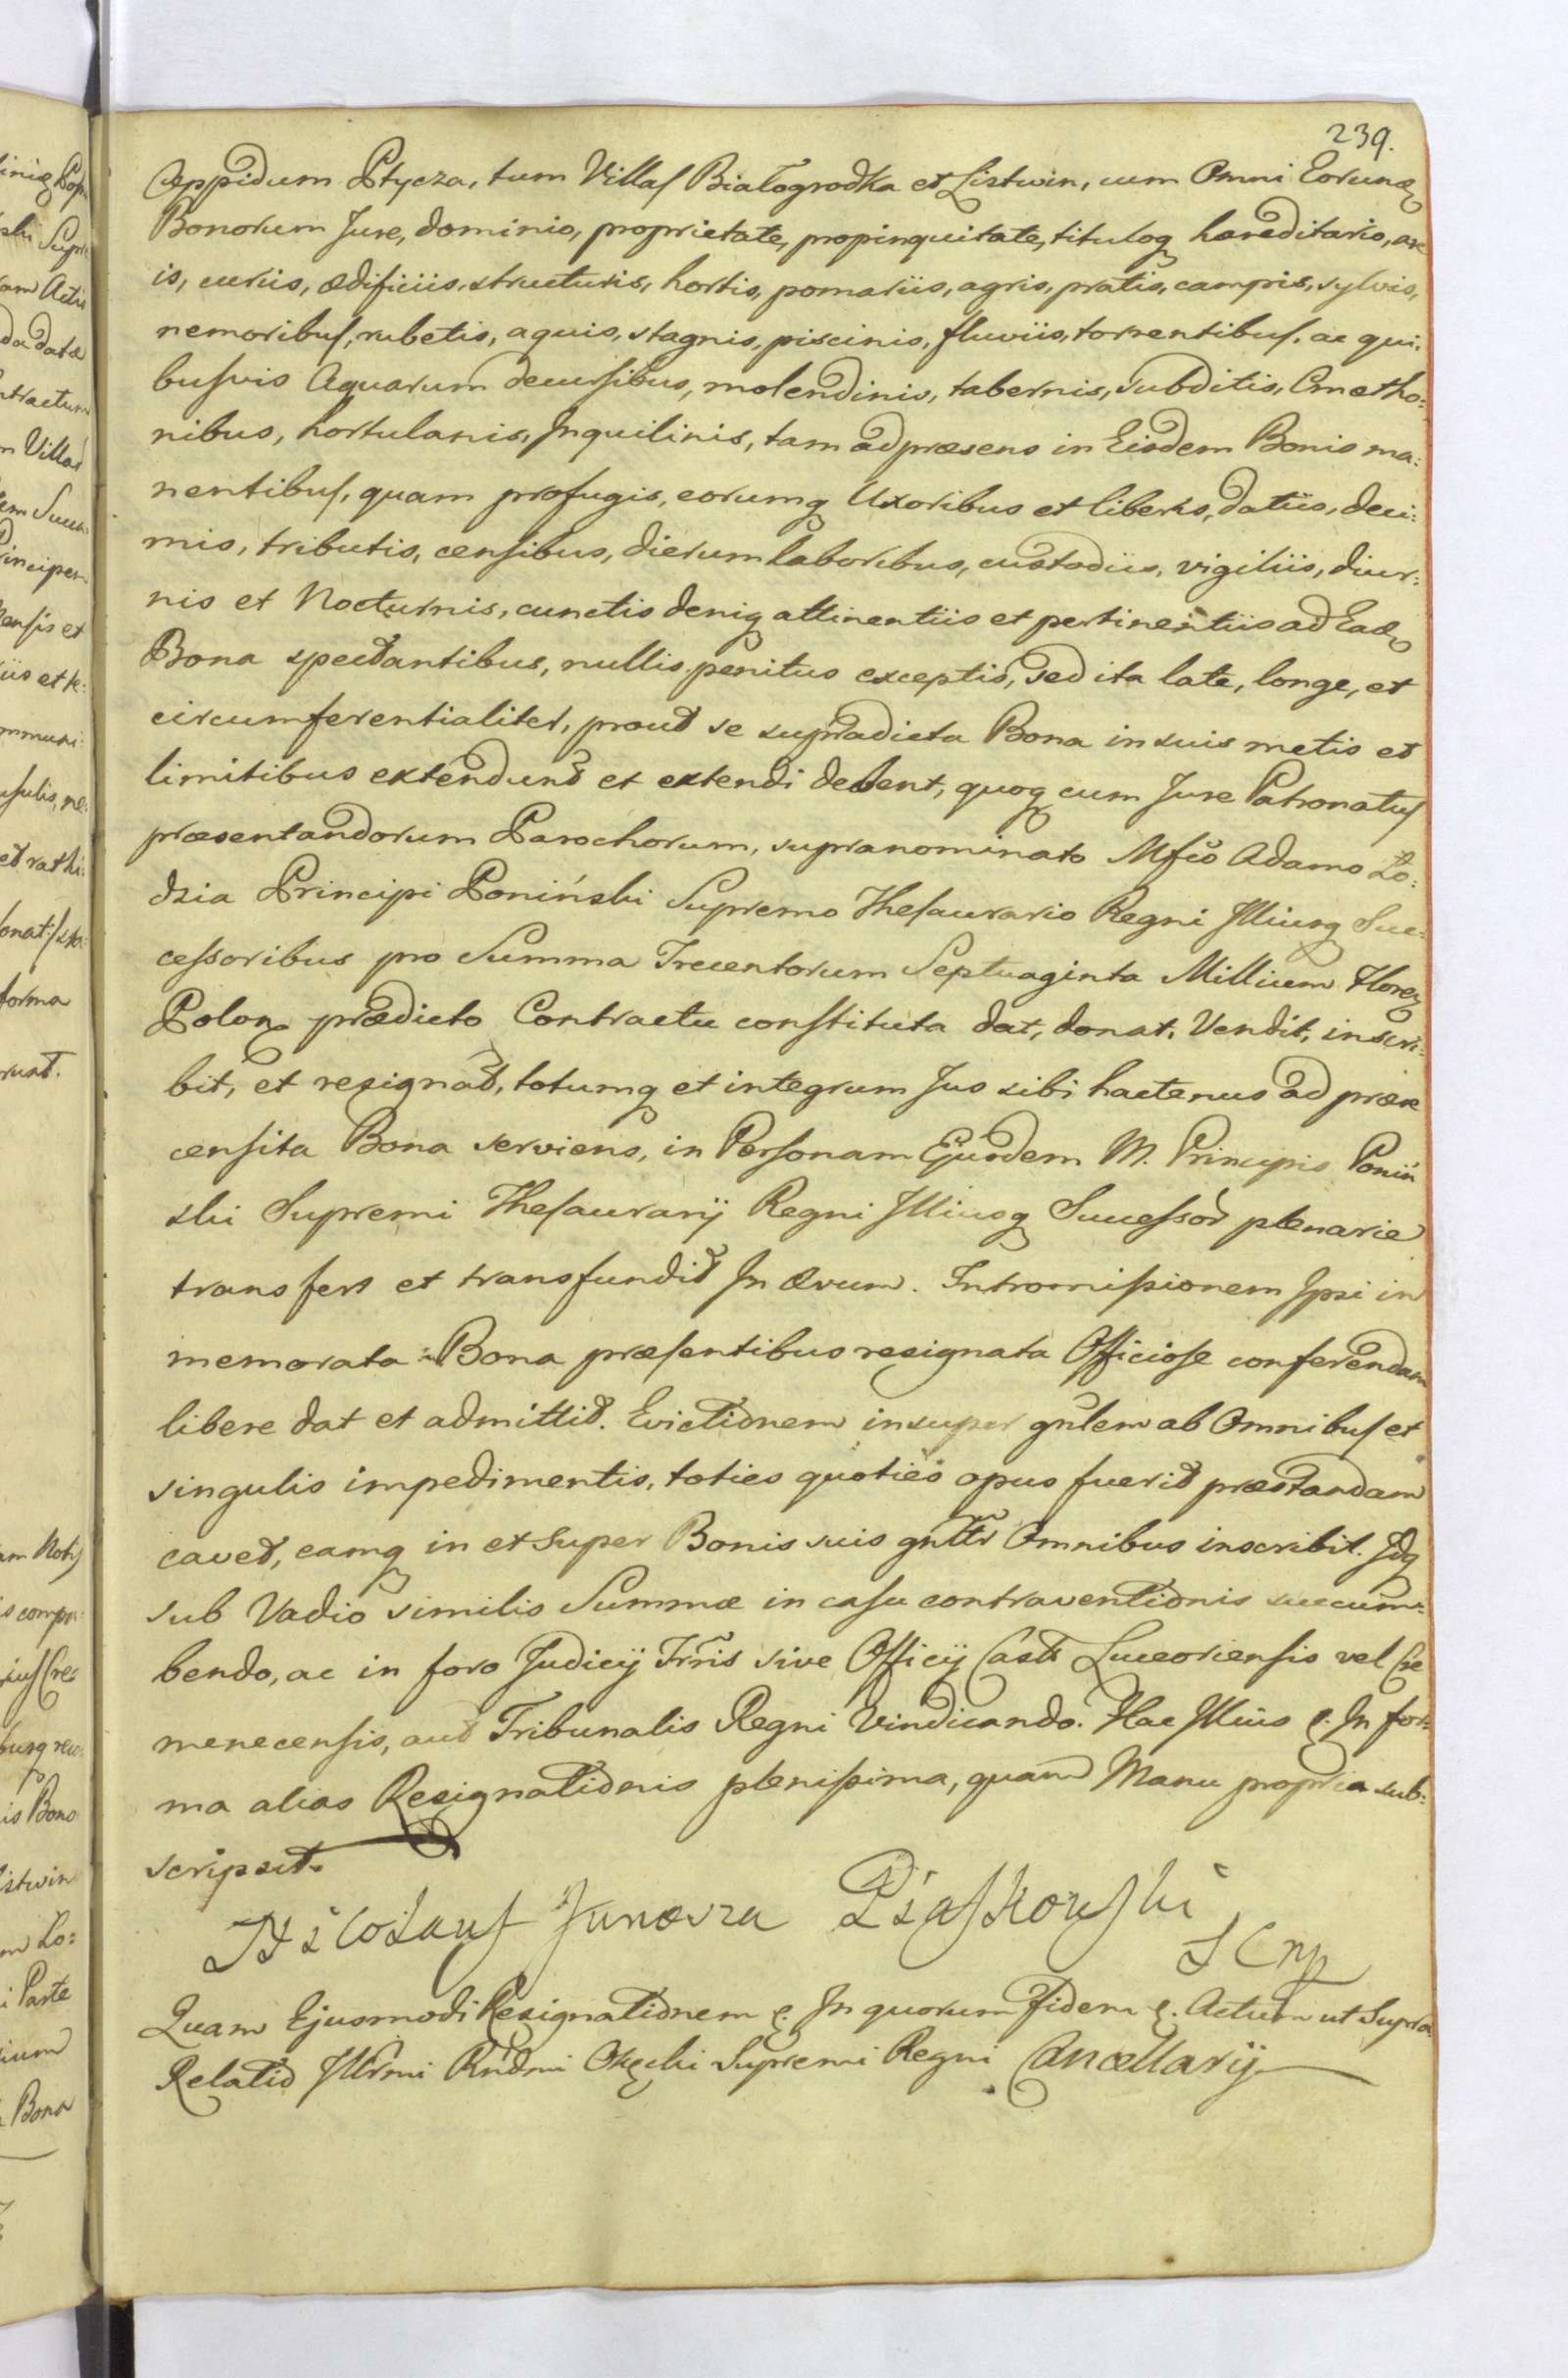 239.
Oppidum Ptycza, tum Villas Białogrodka et Listwin, cum Omni Eorunq
Bonorum Jure, dominio, proprietate, propinquitate, tituloq hæreditario, are
is, curiis, ædificiis, structuris, hortis, pomariis, agris, pratis, campis, sylvis,
nemoribus, rubetis, aquis, stagnis, piscinis, fluviis, torrentibus, ac qui:
busvis Aquarum decursibus, molendinis, tabernis, subditis, Cmetho:
nibus, hortulanis, Inquilinis, tam ad præsens in Eisdem Bonis ma:
nentibus, quam profugis, eorumq Uxoribus et liberis, datiis, deci:
mis, tributis, censibus, dierum laboribus, custodiis, vigiliis, diur:
nis et Nocturnis, cunctis deniq attinentiis et pertinentiis ad Ead
Bona spectantibus, nullis penitus exceptis, sed ita late, longe, et
circumferentialiter, prout se supradicta Bona in suis metis et
limitibus extendunt et extendi debent, quoq cum Jure Patronatus
præsentandorum Parochorum, supranominato Mfco Adamo Ło:
dzia Principi Poniński Supremo Thesaurario Regni Illiusq Suc:
cessoribus pro Summa Trecentorum Septuaginta Millium Floren
Polon prædicto Contractu constituta dat, donat, Vendit, inscri:
bit, et resignat, totumq et integrum Jus sibi hactenus ad prære
censita Bona serviens, in Personam Ejusdem M. Principis Poniń
ski Supremi Thesaurarij Regni Illiusq Successor plenarie
transfert et transfundit In ævum. Intromissionem Ipsi in
memorata Bona præsentibus resignata Officiose conferendam
libere dat et admittit. Evictionem insuper gnlem ab Omnibus et
singulis impedimentis, toties quoties opus fuerit præstandam
cavet, eamq in et super Bonis suis gnttr Omnibus inscribit. Idq
sub Vadio similis Summæ in casu contraventionis succum:
bendo, ac in foro Judicij Trris sive Officij Castr Luceoriensis vel Cre
menecensis, aut Tribunalis Regni Vindicando. Hac Illius &. In for:
ma alias Resignationis plenissima, quam Manu propria sub:
scripsit.
Nicolaus Junosza Piaskowski
S C mp
Quam Ejusmodi Resignationem &. In quorum Fidem &. Actum ut Supra
Relatio Illrmi Rndmi Okęcki Supremi Regni Cancellarij